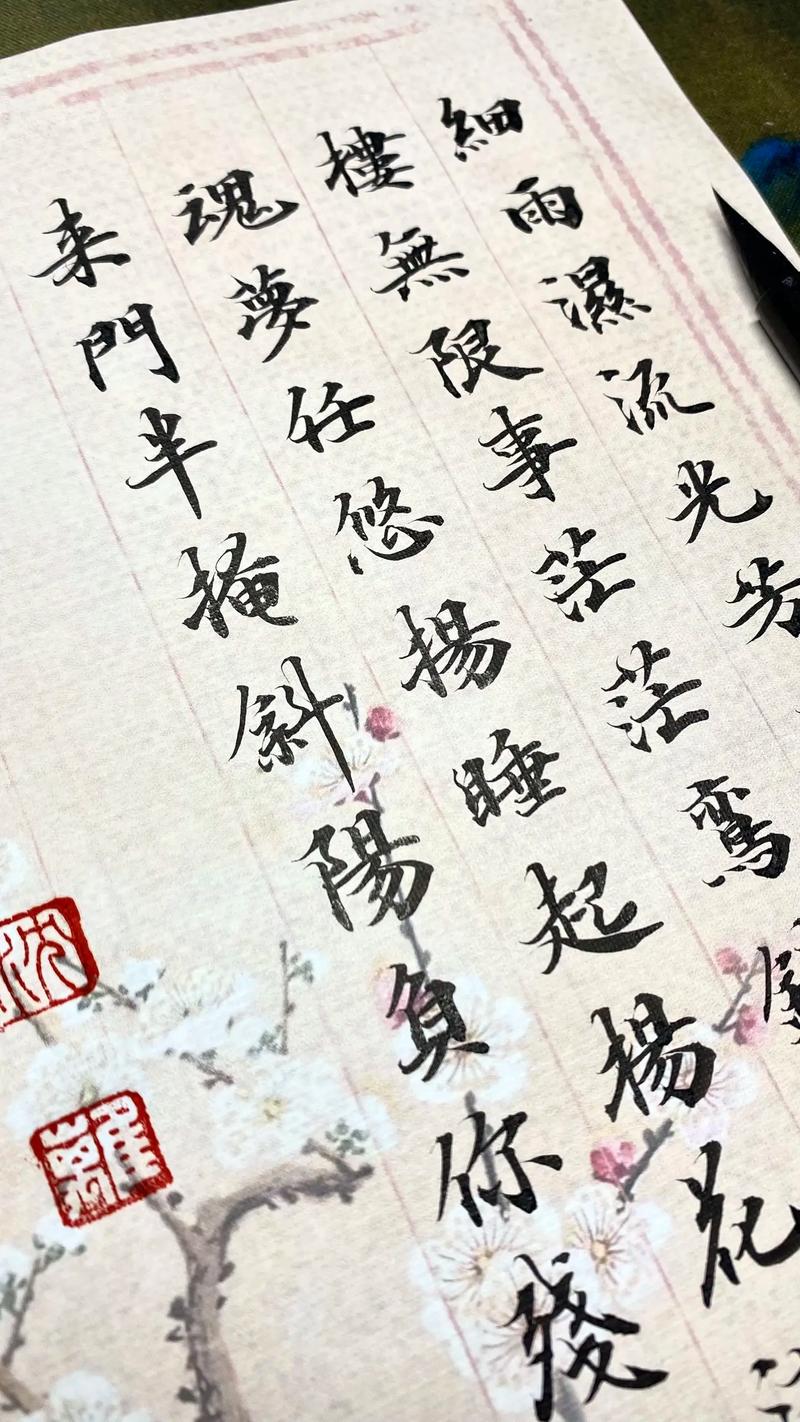 細雨濕流光芳
樓無限事茫茫鸞
魂夢任悠揚睡起楊花
来門半掩斜陽負你殘